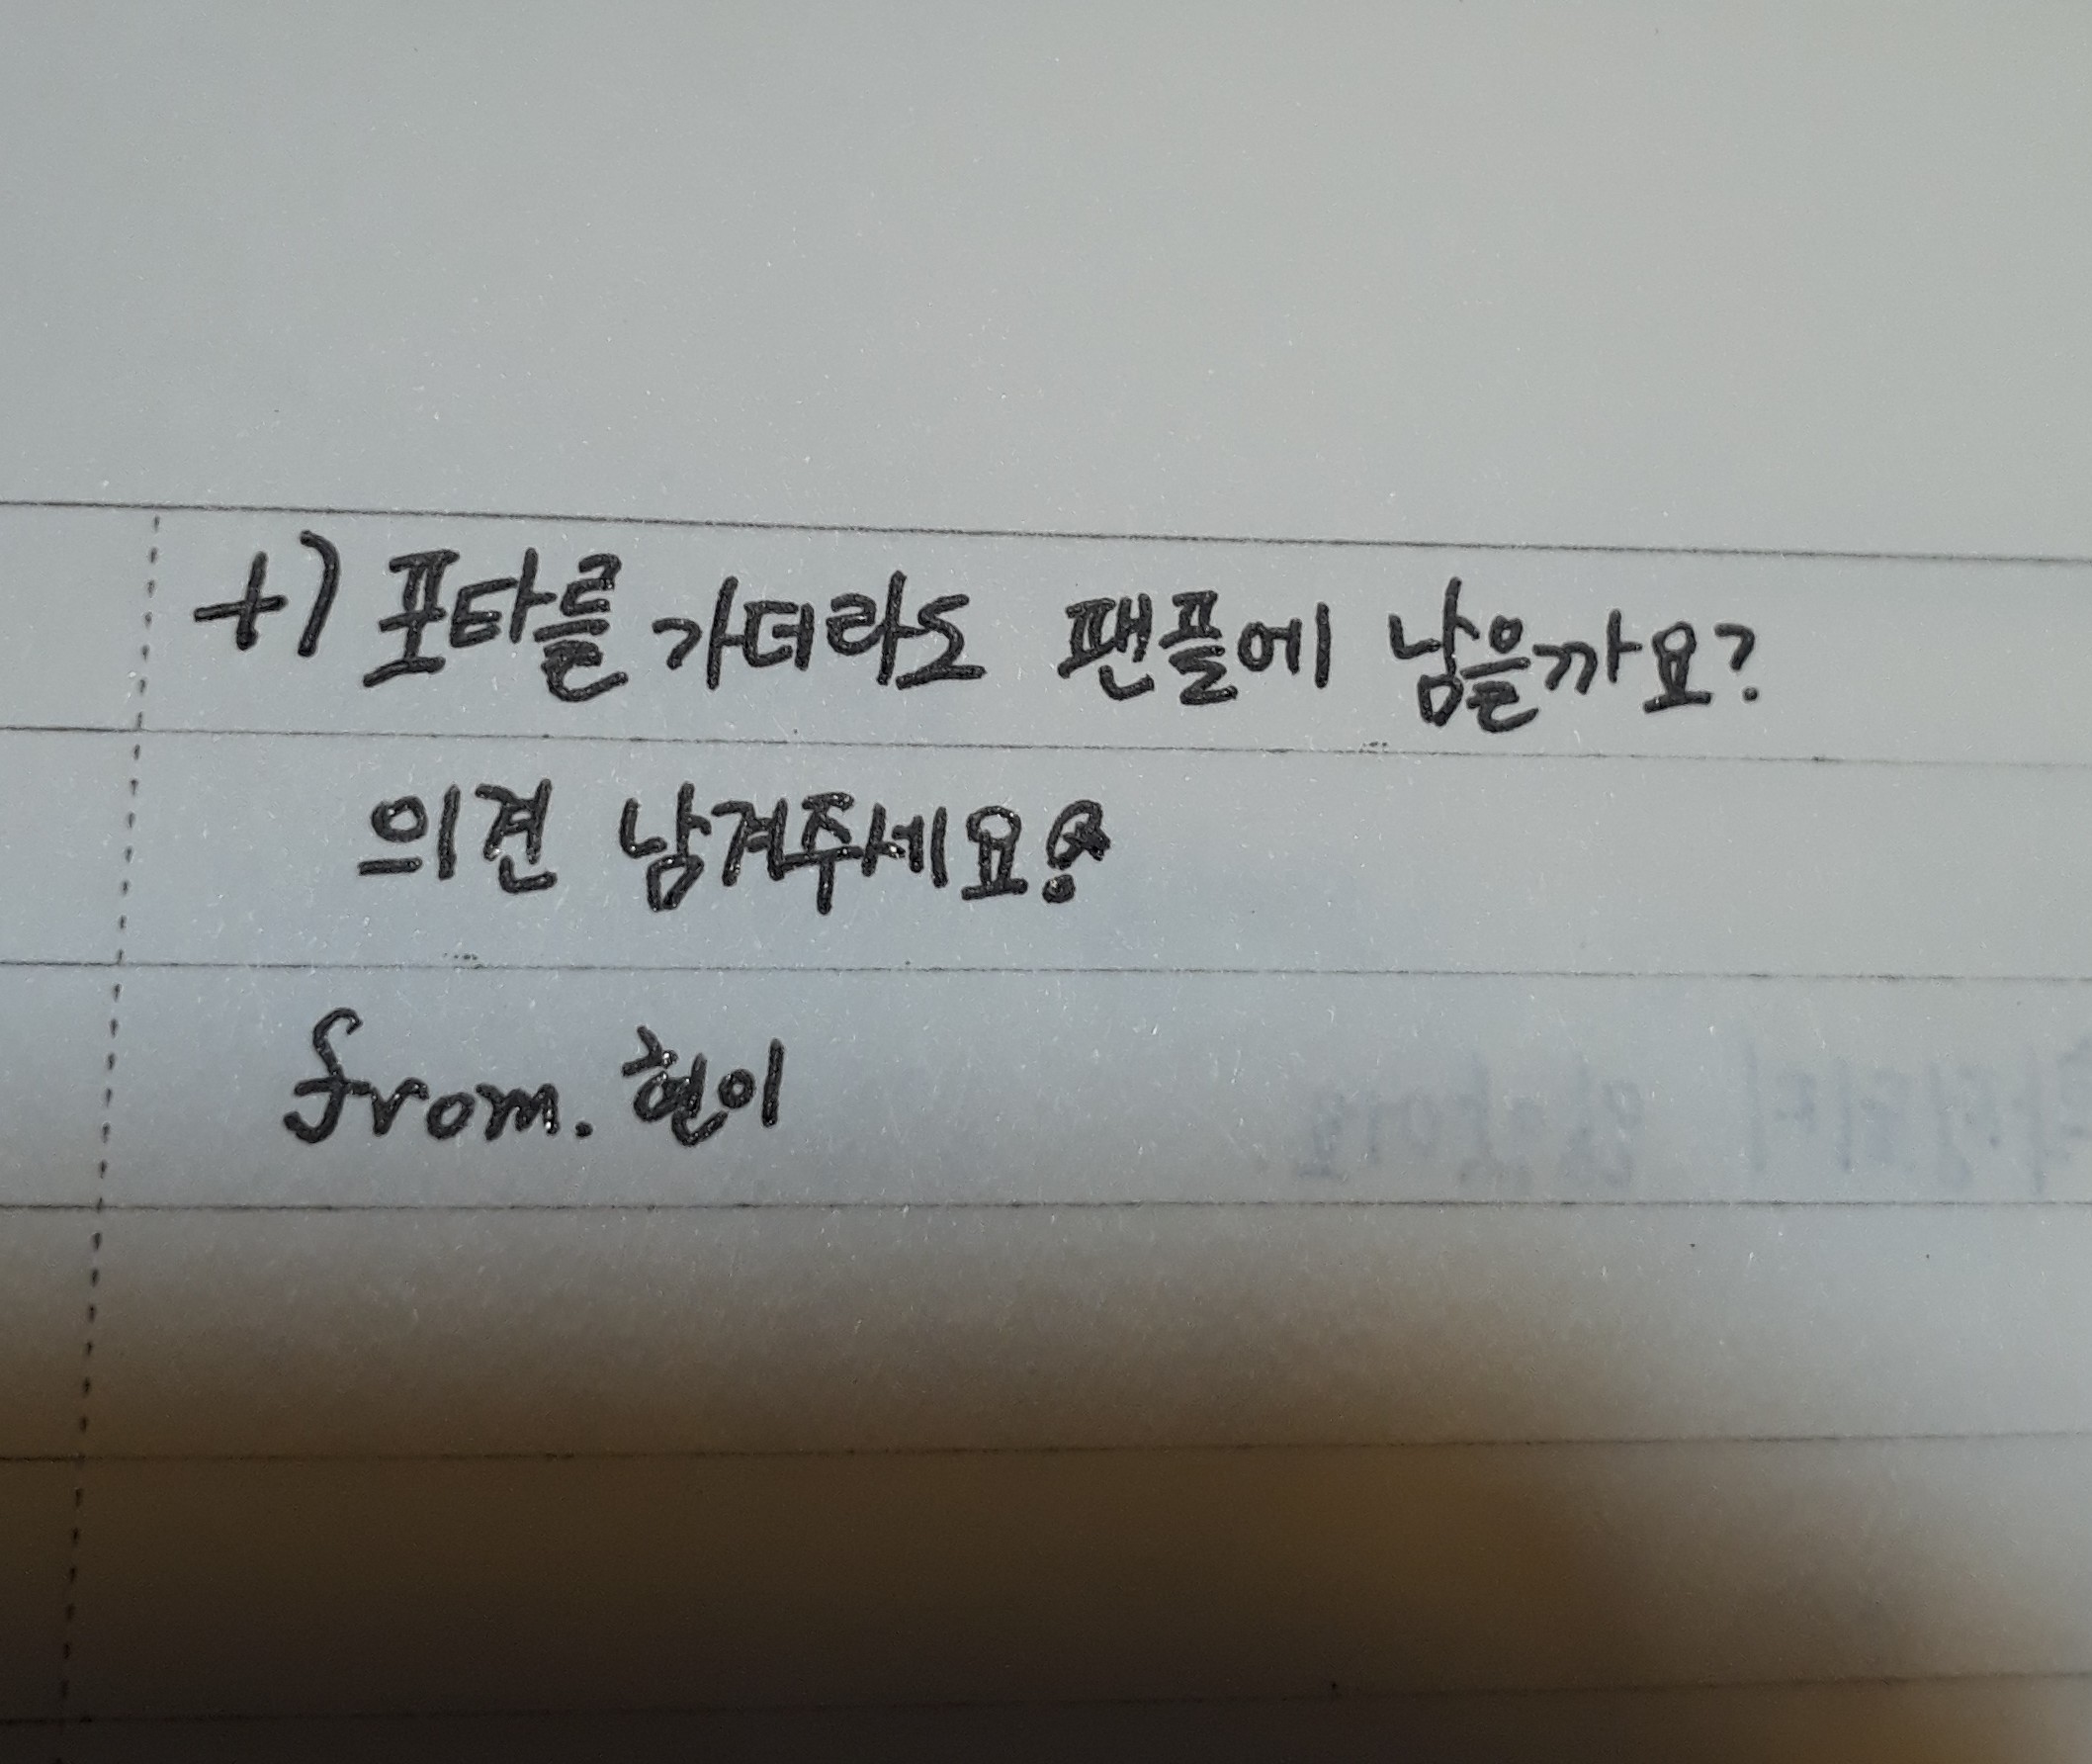 +) 포타를 가더라도 팬플에 남을까요?
의견 남겨주세요!
from. 현이